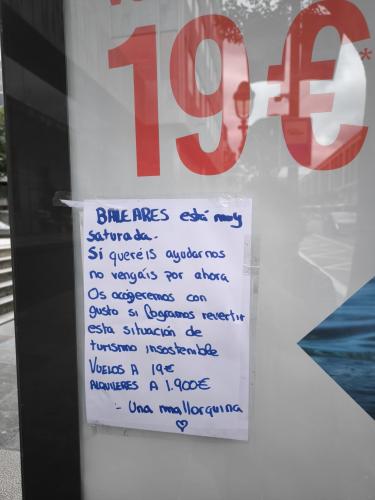 19€*
BALEARES está muy
saturada.
Si queréis ayudarnos
no vengáis por ahora
Os acogeremos con
gusto si logramos revertir
esta situación de
turismo insostenible
VUELOS A 19€
ALQUILERES A 1.900€
- Una mallorquina
♡